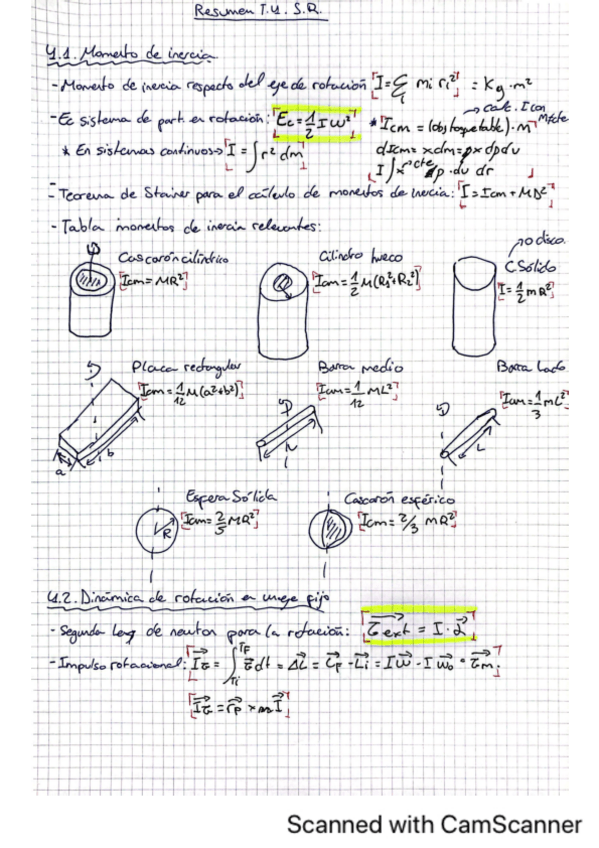 Resumen T.4. S.R.
4.1. Momento de inercia
- Momento de inercia respecto del eje de rotación [I = Σ mi ri²] = kg·m²
i
- Ec sistema de part. en rotación: [Ec = 1/2 I ω²] * Icm = (obj tabla)·M
I con
* En sistemas continuos → [I = ∫ r² dm] dIcm = x dm = ρx dρ dv
- Teorema de Steiner para el cálculo de momentos de inercia: [I = Icm + MD²]
- Tabla momentos de inercia relevantes:
Cascarón cilíndrico
[Icm = MR²]
Cilindro hueco
[Icm = 1/2 M(R₁²+R₂²)]
→ o disco.
C Sólido
[I = 1/2 mR²]
Placa rectangular
[Icm = 1/12 M(a²+b²)]
a
b
Barra medio
[Icm = 1/12 ML²]
Barra lado
[Icm = 1/3 mL²]
L
Esfera Sólida
[Icm = 2/5 MR²]
R
Cascarón esférico
[Icm = 2/3 mR²]
4.2. Dinámica de rotación en un eje fijo
- Segunda ley de newton para la rotación: [τext = I·α]
- Impulso rotacional: [Iτ = ∫ τ dt = ΔL = Lf - Li = Iω - Iω₀ = τm]
Scanned with CamScanner